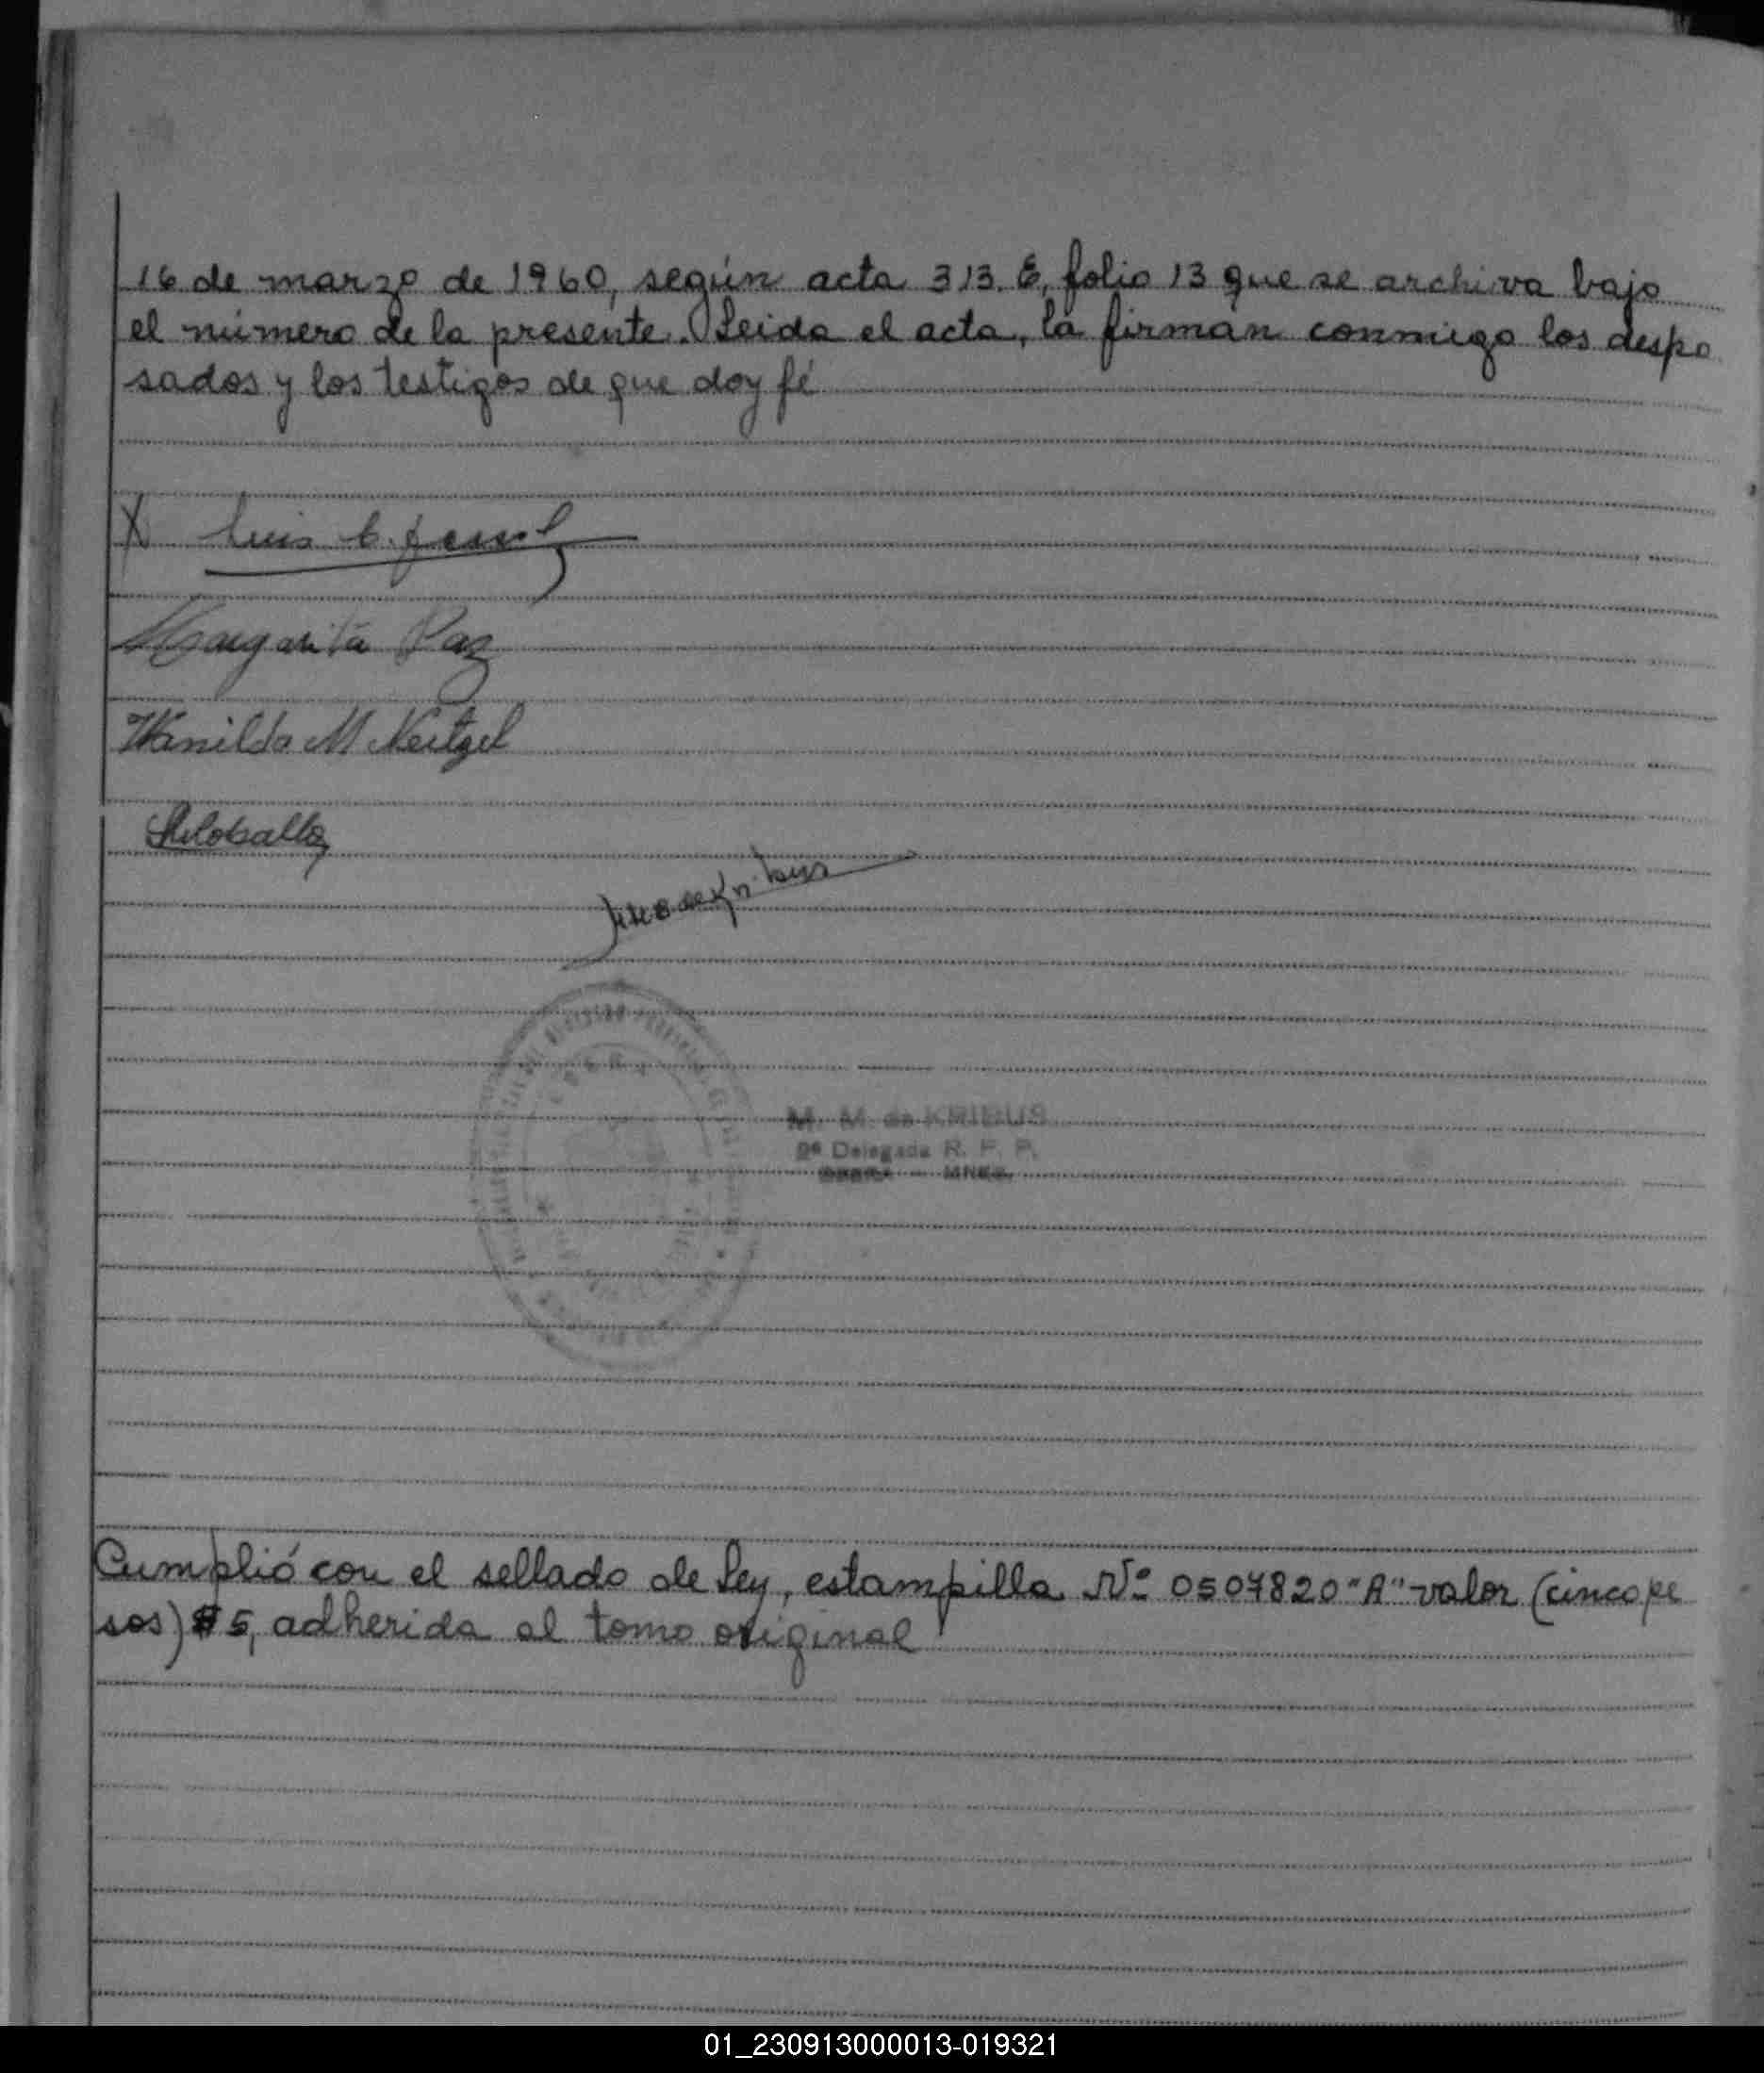 16 de marzo de 1960, según acta 313. E, folio 13 que se archiva bajo
el número de la presente. Leida el acta, la firman conmigo los despo
sados y los testigos de que doy fé
X Luis C.
Margarita Paz
Wanilda M Neitzel
M. M. de KRIBUS
Delegada R. P. P.
OBERA - MNES.
Cumplió con el sellado de Ley, estampilla Nº 0507820 "A" valor (cinco pe
sos) $5, adherida al tomo original
01_230913000013-019321